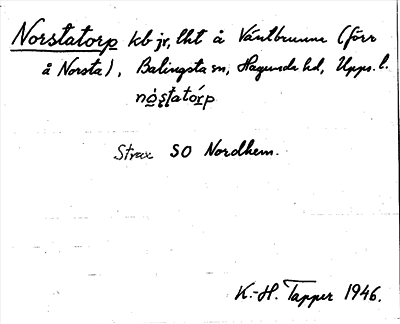 Norstatorp kb jr, lht å Väntbrunna (förr
å Norsta), Balingsta sn, Hagunda hd, Upps. l.
nó̱ṣtatórp
Strax SO Nordhem.
K.-H. Tapper 1946.